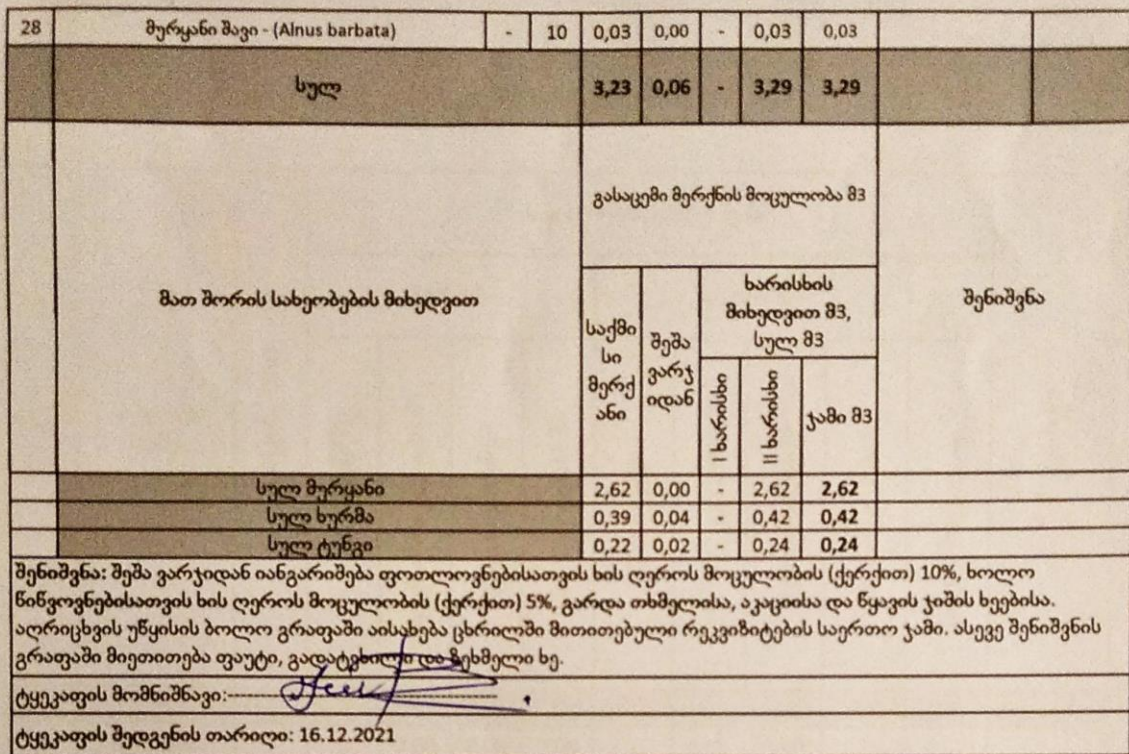 28 მურყანი შავი - (Alnus barbata) - 10 0,03 0,00 - 0,03 0,03
სულ 3,23 0,06 - 3,29 3,29
გასაცემი მერქნის მოცულობა მ3
მათ შორის სახეობების მიხედვით
საქმი
სი
მერქ
ანი
შეშა
ვარჯ
იდან
ხარისხის
მიხედვით მ3,
სულ მ3
I ხარისხი
II ხარისხი
ჯამი მ3
შენიშვნა
სულ მურყანი 2,62 0,00 - 2,62 2,62
სულ ხურმა 0,39 0,04 - 0,42 0,42
სულ ტუნგი 0,22 0,02 - 0,24 0,24
შენიშვნა: შეშა ვარჯიდან იანგარიშება ფოთლოვნებისათვის ხის ღეროს მოცულობის (ქერქით) 10%, ხოლო
წიწვოვნებისათვის ხის ღეროს მოცულობის (ქერქით) 5%, გარდა თხმელისა, აკაციისა და წყავის ჯიშის ხეებისა.
აღრიცხვის უწყისის ბოლო გრაფაში აისახება ცხრილში მითითებული რეკვიზიტების საერთო ჯამი. ასევე შენიშვნის
გრაფაში მიეთითება ფაუტი, გადატეხილი და ზეხმელი ხე.
ტყეკაფის მომნიშნავი:
ტყეკაფის შედგენის თარიღი: 16.12.2021